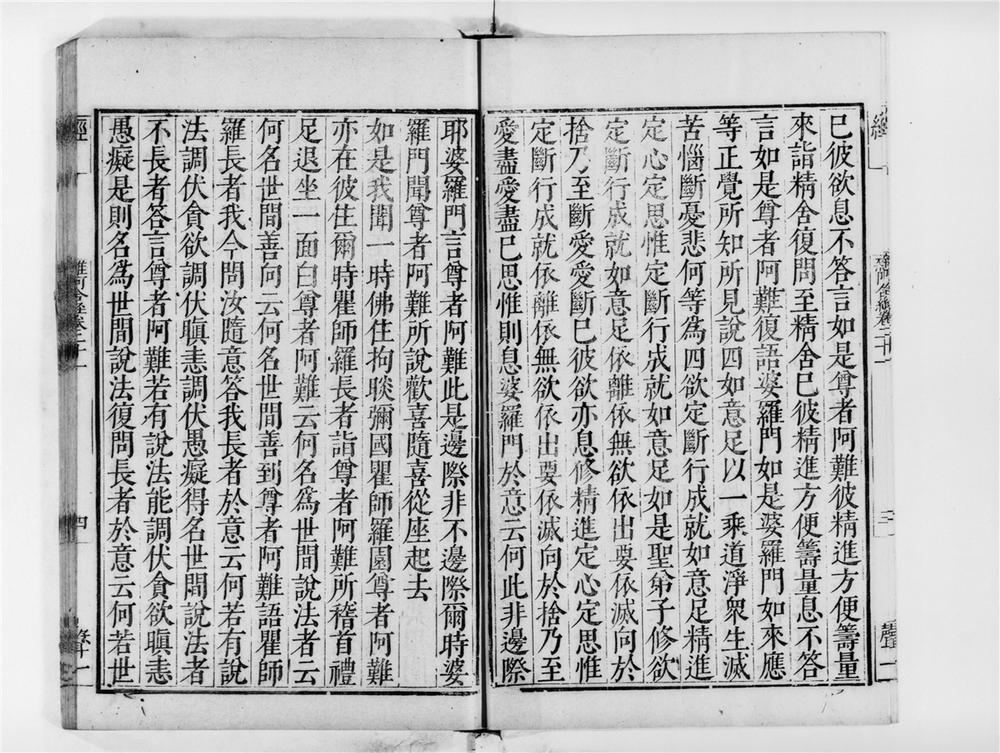 已彼欲息不答言如是尊者阿難彼精進方便籌量
來詣精舍復問至精舍已彼精進方便籌量息不答
言如是尊者阿難復語婆羅門如是婆羅門如來應
等正覺所知所見說四如意足以一乘道淨衆生滅
苦惱斷憂悲何等為四欲定斷行成就如意足精進
定心定思惟定斷行成就如意足如是聖弟子修欲
定斷行成就如意足依離依無欲依出要依滅向於
捨乃至斷愛愛斷已彼欲亦息修精進定心定思惟
定斷行成就依離依無欲依出要依滅向於捨乃至
愛盡愛盡已思惟則息婆羅門於意云何此非邊際
耶婆羅門言尊者阿難此是邊際非不邊際爾時婆
羅門聞尊者阿難所說歡喜隨喜從座起去
如是我聞一時佛住拘睒彌國瞿師羅園尊者阿難
亦在彼住爾時瞿師羅長者詣尊者阿難所稽首禮
足退坐一面白尊者阿難云何名為世間說法者云
何名世間善向云何名世間善到尊者阿難語瞿師
羅長者我今問汝隨意答我長者於意云何若有說
法調伏貪欲調伏瞋恚調伏愚癡得名世間說法者
不長者答言尊者阿難若有說法能調伏貪欲瞋恚
愚癡是則名為世間說法復問長者於意云何若世
經
雜阿含經卷二十一
四